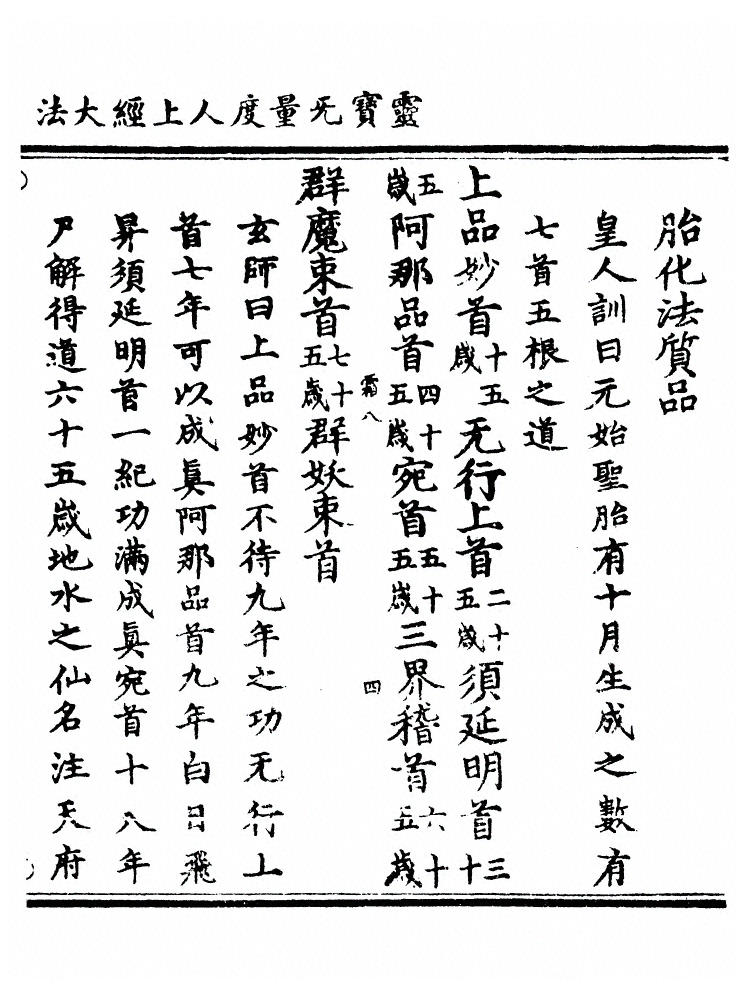 靈寶无量度人上經大法
胎化法質品
皇人訓曰元始聖胎有十月生成之數有
七首五根之道
上品妙首十五歲无行上首二十五歲須延明首三十
五歲阿那品首四十五歲宛首五十五歲三界稽首六十五歲
霜八 四
群魔束首七十五歲群妖束首
玄師曰上品妙首不待九年之功无行上
首七年可以成眞阿那品首九年白日飛
昇須延明首一紀功滿成眞宛首十八年
尸解得道六十五歲地水之仙名注天府